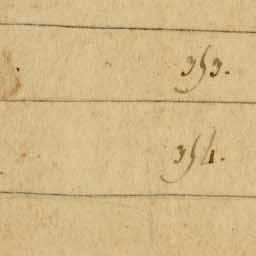 353.
354.